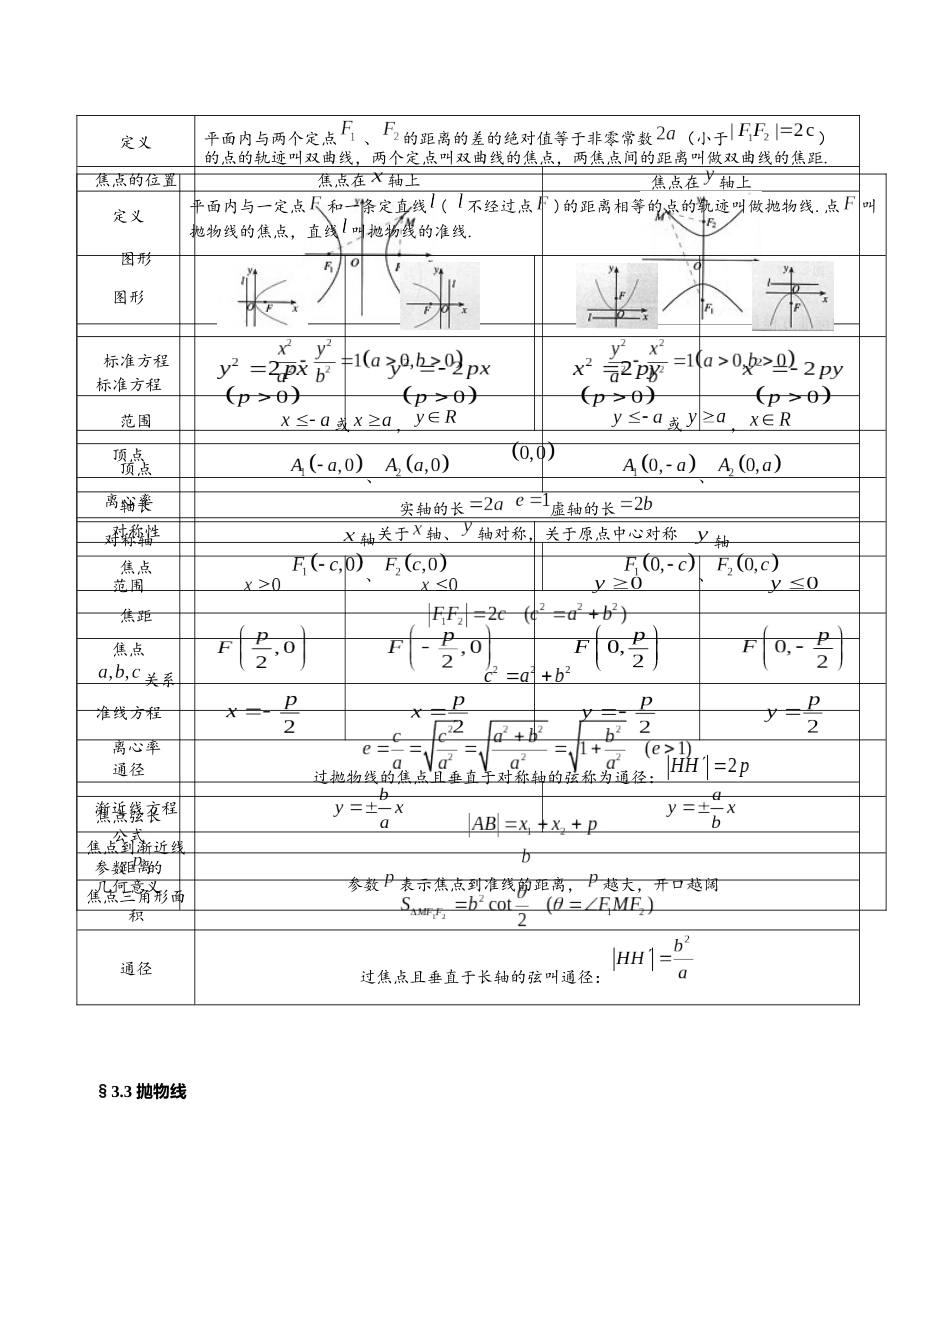 定义 平面内与两个定点 F₁ 、 F₂ 的距离的差的绝对值等于非零常数 2a （小于 |F₁F₂|=2c ）
的点的轨迹叫双曲线，两个定点叫双曲线的焦点，两焦点间的距离叫做双曲线的焦距.
焦点的位置 焦点在 x 轴上 焦点在 y 轴上
定义 平面内与一定点 F 和一条定直线 l ( l 不经过点 F )的距离相等的点的轨迹叫做抛物线.点 F 叫
抛物线的焦点，直线 l 叫抛物线的准线.
图形
图形
标准方程 x²/a² - y²/b² =1(a>0,b>0) y²/a² - x²/b² =1(a>0,b>0)
标准方程 y²=2px (p>0) y²=-2px (p>0) x²=2py (p>0) x²=-2py (p>0)
范围 x≤-a 或 x≥a ， y∈R y≤-a 或 y≥a ， x∈R
顶点 (0,0)
顶点 A₁(-a,0) 、 A₂(a,0) A₁(0,-a) 、 A₂(0,a)
离心率 e=1
轴长 实轴的长 =2a 虚轴的长 =2b
对称性 关于 x 轴、 y 轴对称，关于原点中心对称
对称轴 x 轴 y 轴
焦点 F₁(-c,0) 、 F₂(c,0) F₁(0,-c) 、 F₂(0,c)
范围 x≥0 x≤0 y≥0 y≤0
焦距 |F₁F₂|=2c (c²=a²+b²)
焦点 F(p/2,0) F(-p/2,0) F(0,p/2) F(0,-p/2)
a,b,c 关系 c²=a²+b²
准线方程 x=-p/2 x=p/2 y=-p/2 y=p/2
离心率 e=c/a=√(c²/a²)=√((a²+b²)/a²)=√(1+b²/a²) (e>1)
通径 过抛物线的焦点且垂直于对称轴的弦称为通径： |HH′|=2p
渐近线方程 y=±(b/a)x y=±(a/b)x
焦点弦长
公式 |AB|=x₁+x₂+p
焦点到渐近线
距离 b
参数 p 的
几何意义 参数 p 表示焦点到准线的距离， p 越大，开口越阔
焦点三角形面
积 S△MF₁F₂=b²cot(θ/2) (θ=∠F₁MF₂)
通径 过焦点且垂直于长轴的弦叫通径： |HH′|=b²/a
§3.3 抛物线